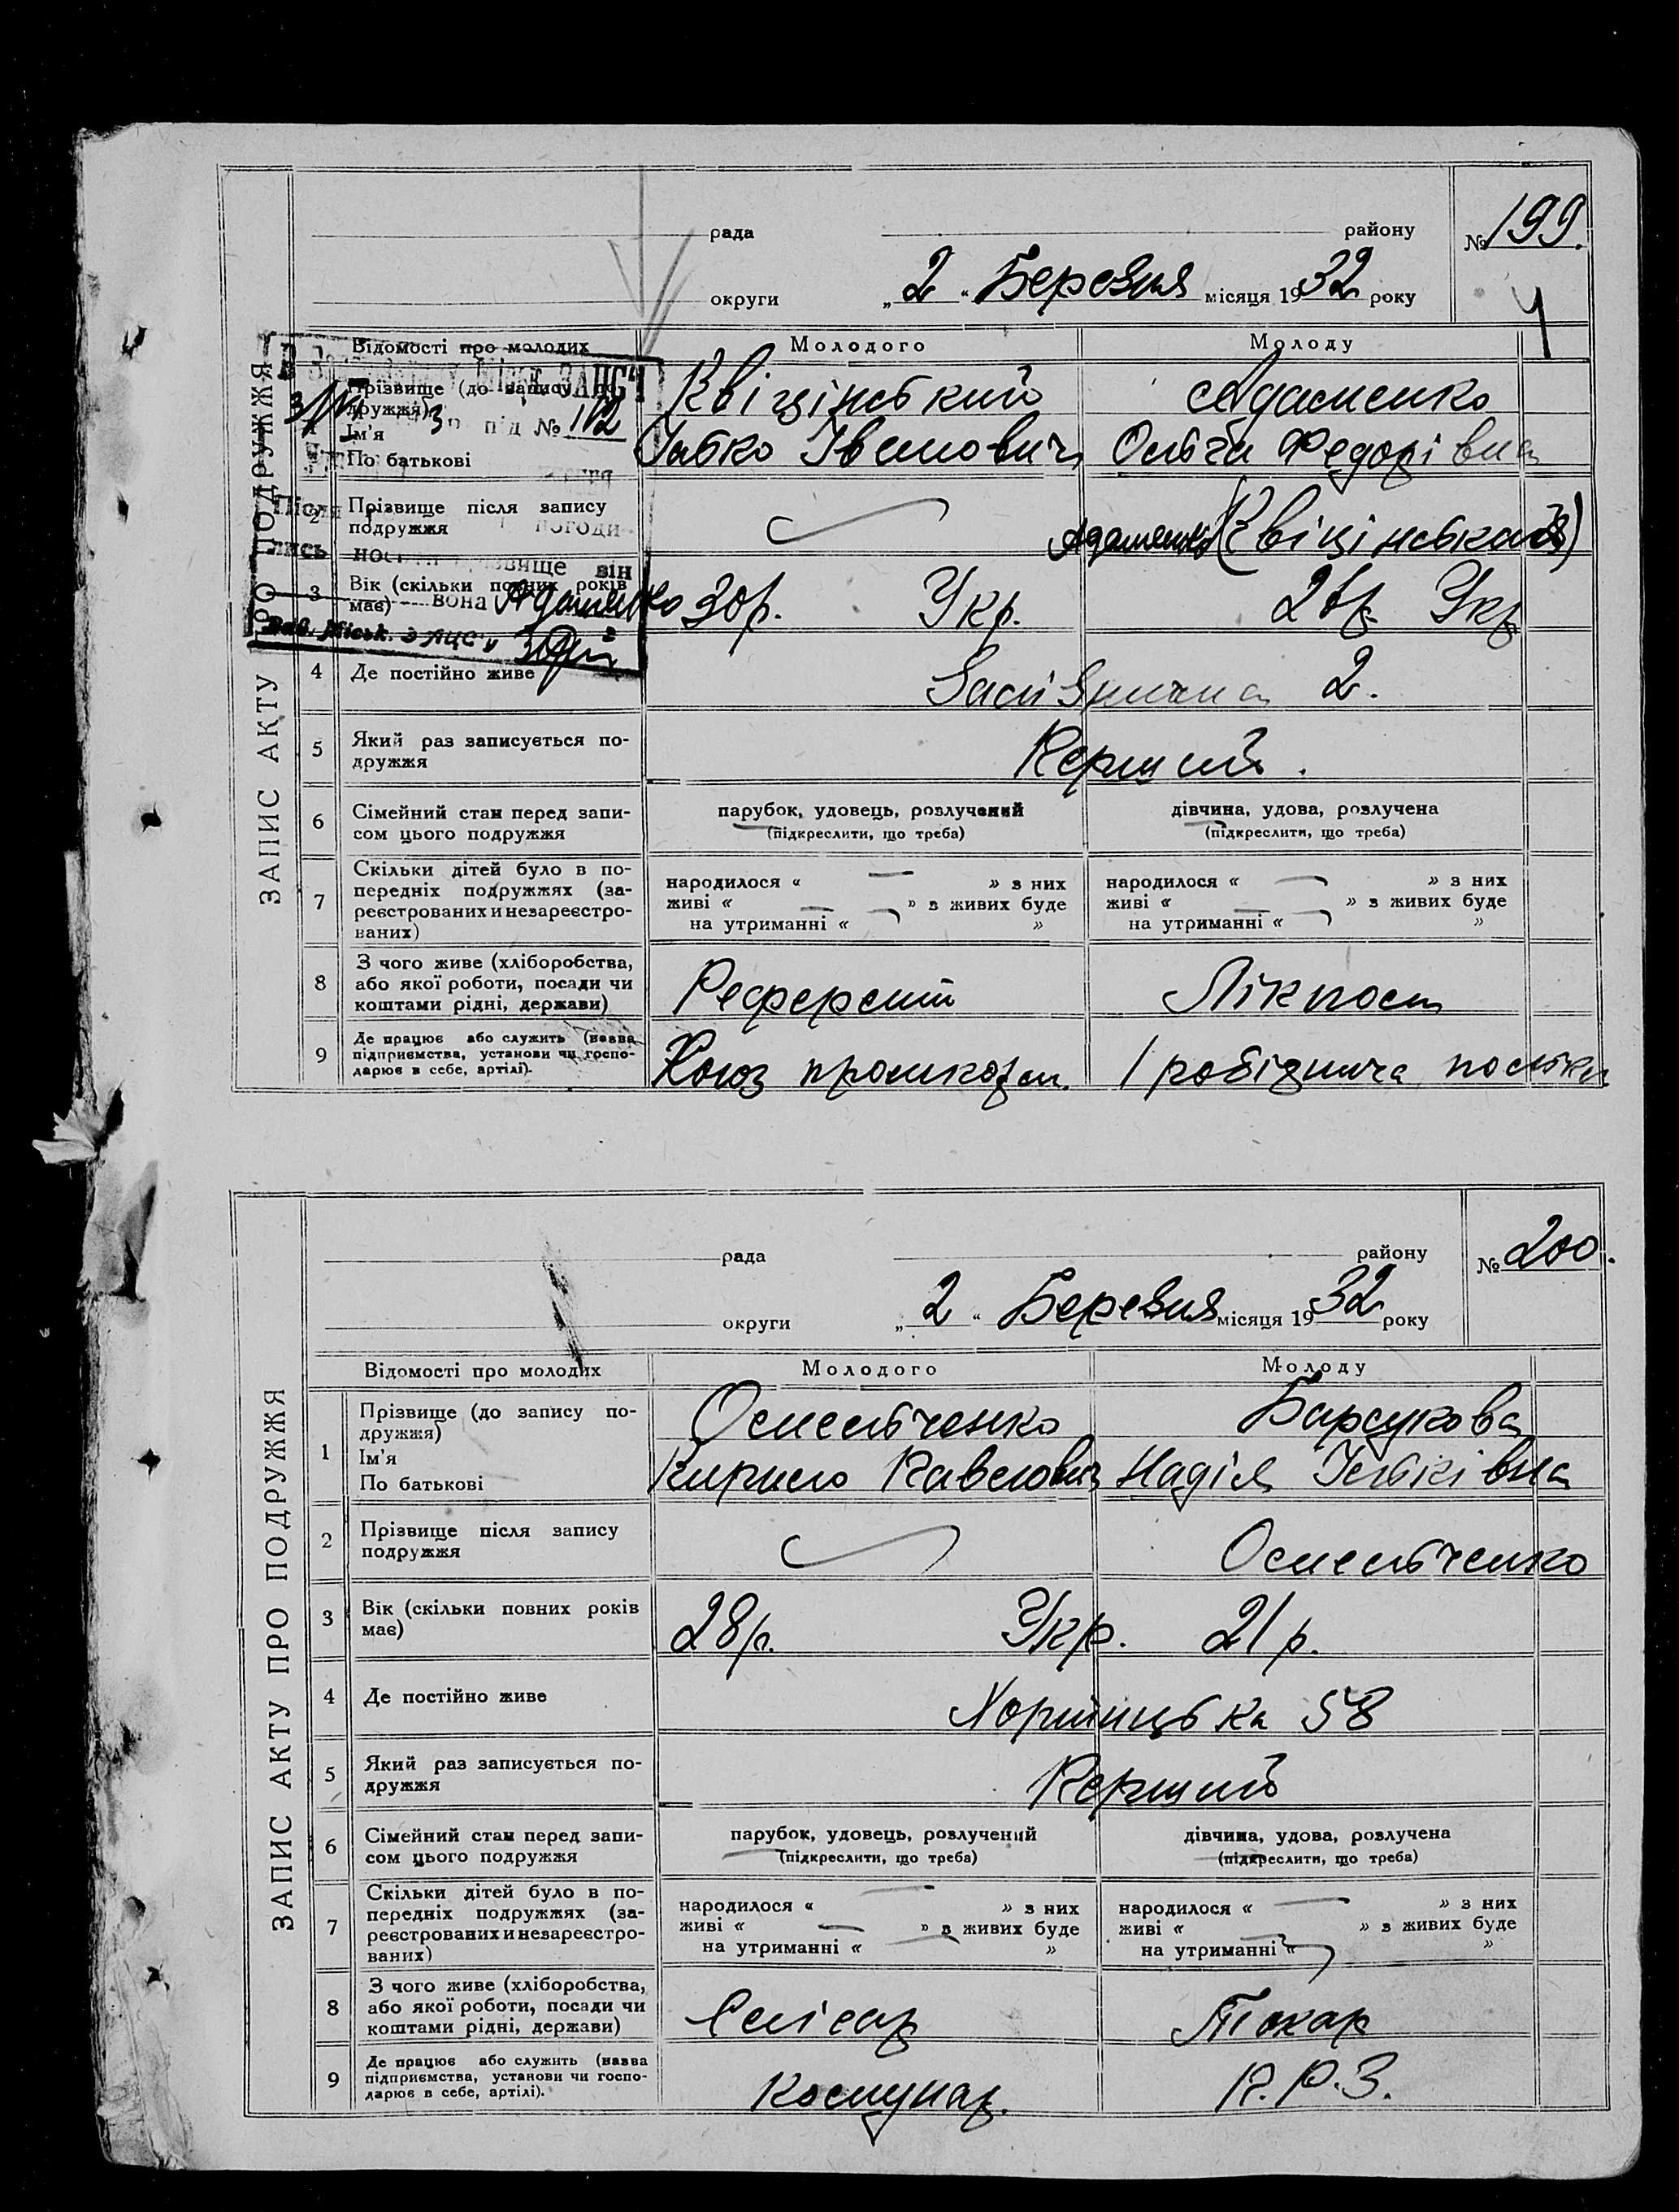 ЗАПИС АКТУ ПРО ПОДРУЖЖЯ
рада району № 199.
округи „ 2 “ Березня місяця 1932 року
Відомості про молодих Молодого Молоду
Прізвище (до запису по-
дружжя) Квіцінський Адаменко
Ім'я
По батькові Іванович Ольга Федорівна
під № 112
2 Прізвище після запису
подружжя Адаменко (Квіцінська)
вище він
3 Вік (скільки повних років
має) 30 р. Укр. Укр.
вона Адаменко
4 Де постійно живе 2.
5 Який раз записується по-
дружжя Перший.
6 Сімейний стан перед запи-
сом цього подружжя
парубок, удовець, розлучений дівчина, удова, розлучена
(підкреслити, що треба) (підкреслити, що треба)
7 Скільки дітей було в по-
передніх подружжях (за-
реєстрованих и незареєстро-
ваних)
народилося « — » з них народилося « — » з них
живі « — » з живих буде живі « — » з живих буде
на утриманні « » на утриманні « »
8 З чого живе (хліборобства,
або якої роботи, посади чи
коштами рідні, держави) Референт Лікпом
9 Де працює або служить (назва
підприємства, установи чи госпо-
дарює в себе, артілі).
Союз 1 робітнича
ЗАПИС АКТУ ПРО ПОДРУЖЖЯ
рада району № 200.
округи „ 2 “ Березня місяця 1932 року
Відомості про молодих Молодого Молоду
1 Прізвище (до запису по-
дружжя) Омельченко Барсукова
Ім'я
По батькові Кирило Павлович Надія
2 Прізвище після запису
подружжя Омельченко
3 Вік (скільки повних років
має) 28 р. Укр. 21 р.
4 Де постійно живе 58
5 Який раз записується по-
дружжя Перший
6 Сімейний стан перед запи-
сом цього подружжя
парубок, удовець, розлучений дівчина, удова, розлучена
(підкреслити, що треба) (підкреслити, що треба)
7 Скільки дітей було в по-
передніх подружжях (за-
реєстрованих и незареєстро-
ваних)
народилося « — » з них народилося « — » з них
живі « — » з живих буде живі « » з живих буде
на утриманні « » на утриманні « »
8 З чого живе (хліборобства,
або якої роботи, посади чи
коштами рідні, держави) Слісар Токар
9 Де працює або служить (назва
підприємства, установи чи госпо-
дарює в себе, артілі). Комунар. П.Р.З.